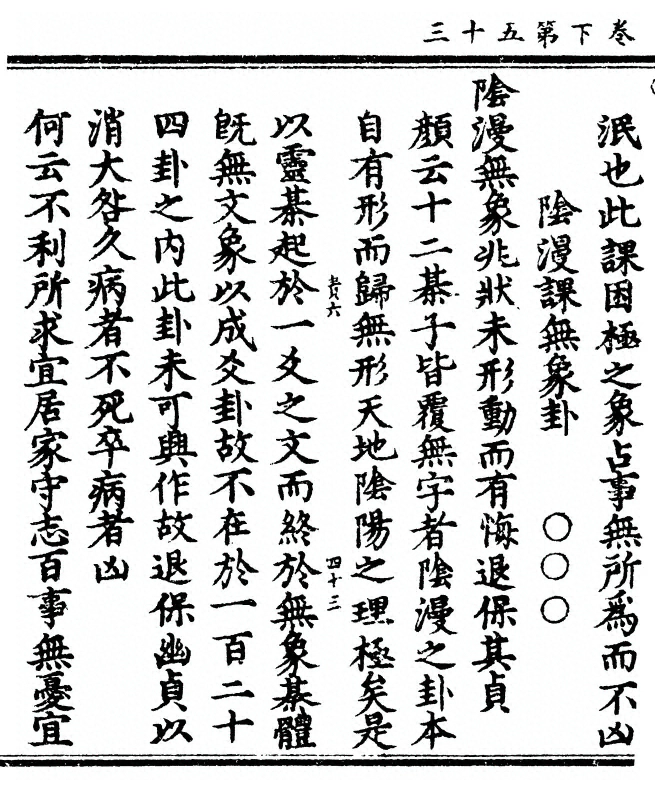 卷下第五十三
泯也此課困極之象占事無所爲而不凶
陰漫課無象卦 〇〇〇
陰漫無象兆狀未形動而有悔退保其貞
顏云十二棊子皆覆無字者陰漫之卦本
自有形而歸無形天地陰陽之理極矣是
貴六 四十三
以靈棊起於一爻之文而終於無象棊體
旣無文象以成爻卦故不在於一百二十
四卦之內此卦未可與作故退保幽貞以
消大咎久病者不死卒病者凶
何云不利所求宜居家守志百事無憂宜